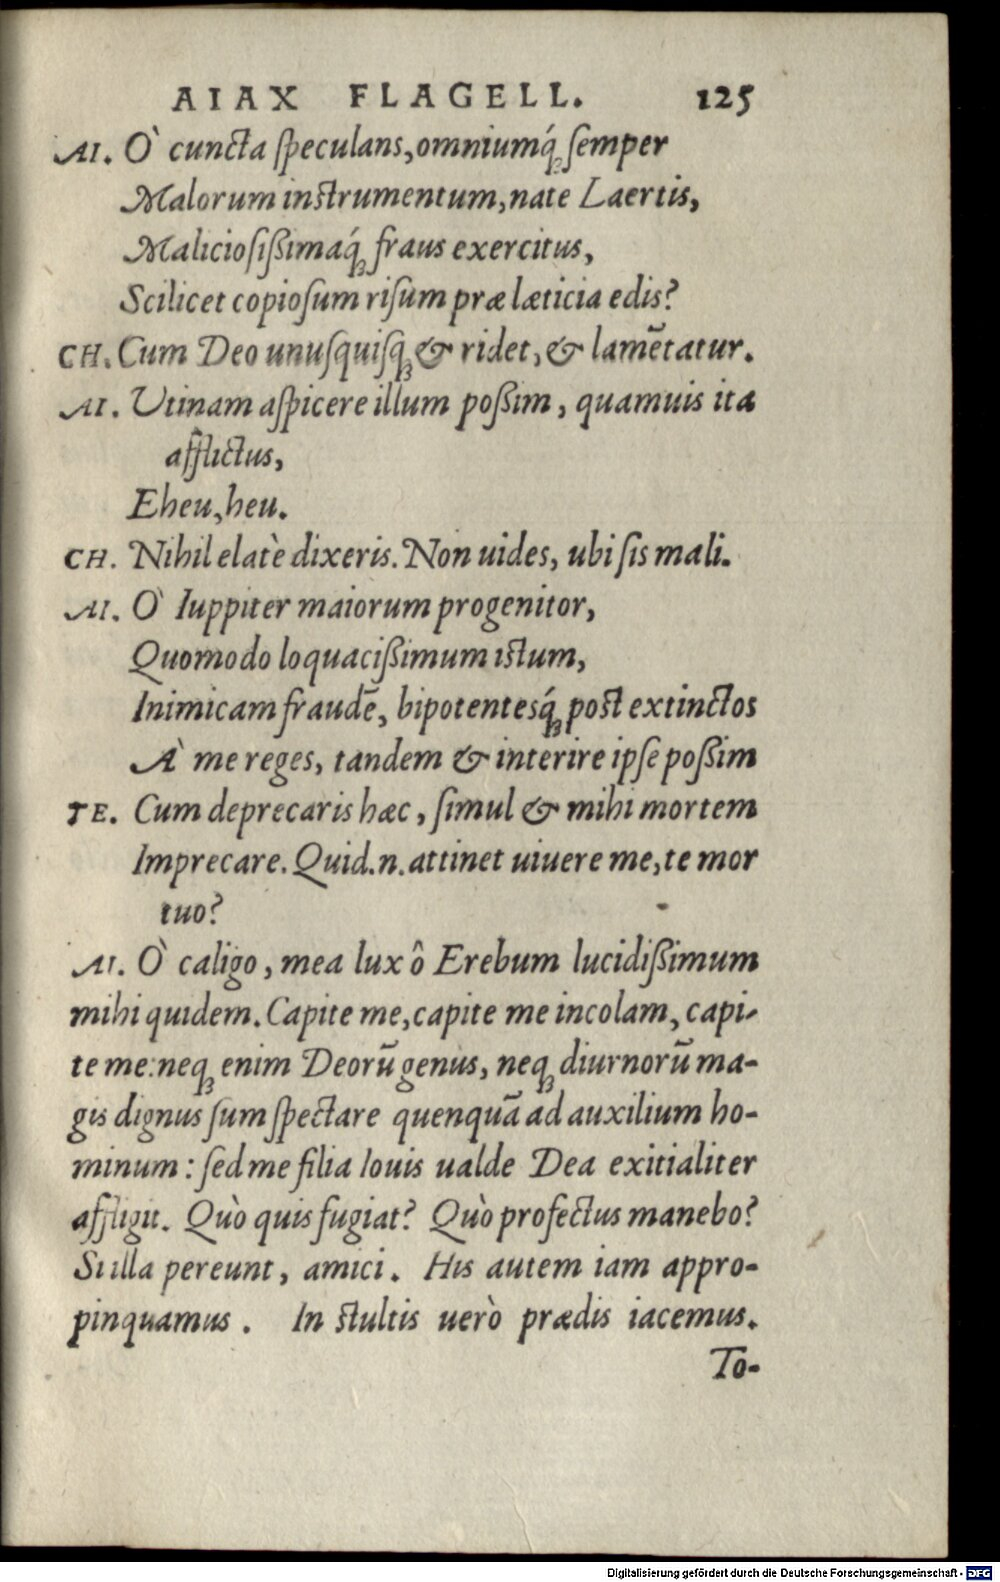 AIAX FLAGELL. 125
AI. Ò cuncta ſpeculans, omniumq́ꝫ ſemper
Malorum instrumentum, nate Laertis,
Maliciosißimaq́ꝫ fraus exercitus,
Scilicet copioſum riſum præ læticia edis?
CH. Cum Deo unuſquiſqꝫ & ridet, & lamẽtatur.
AI. Utinam aſpicere illum poßim, quamuis ita
afflictus,
Eheu, heu.
CH. Nihil elatè dixeris. Non uides, ubi ſis mali.
AI. Ò Iuppiter maiorum progenitor,
Quomodo loquacißimum istum,
Inimicam fraudẽ, bipotentesq́ꝫ post extinctos
À me reges, tandem & interire ipſe poßim
TE. Cum deprecaris hæc, ſimul & mihi mortem
Imprecare. Quid.n. attinet uiuere me, te mor
tuo?
AI. Ò caligo, mea lux ô Erebum lucidißimum
mihi quidem. Capite me, capite me incolam, capi-
te me: neqꝫ enim Deorũ genus, neqꝫ diurnorũ ma-
gis dignus ſum ſpectare quenquã ad auxilium ho-
minum: ſed me filia Iouis ualde Dea exitialiter
affligit. Quò quis fugiat? Quò profectus manebo?
Si illa pereunt, amici. His autem iam appro-
pinquamus. In stultis uerò prædis iacemus.
To-
Digitalisierung gefördert durch die Deutsche Forschungsgemeinschaft - DFG